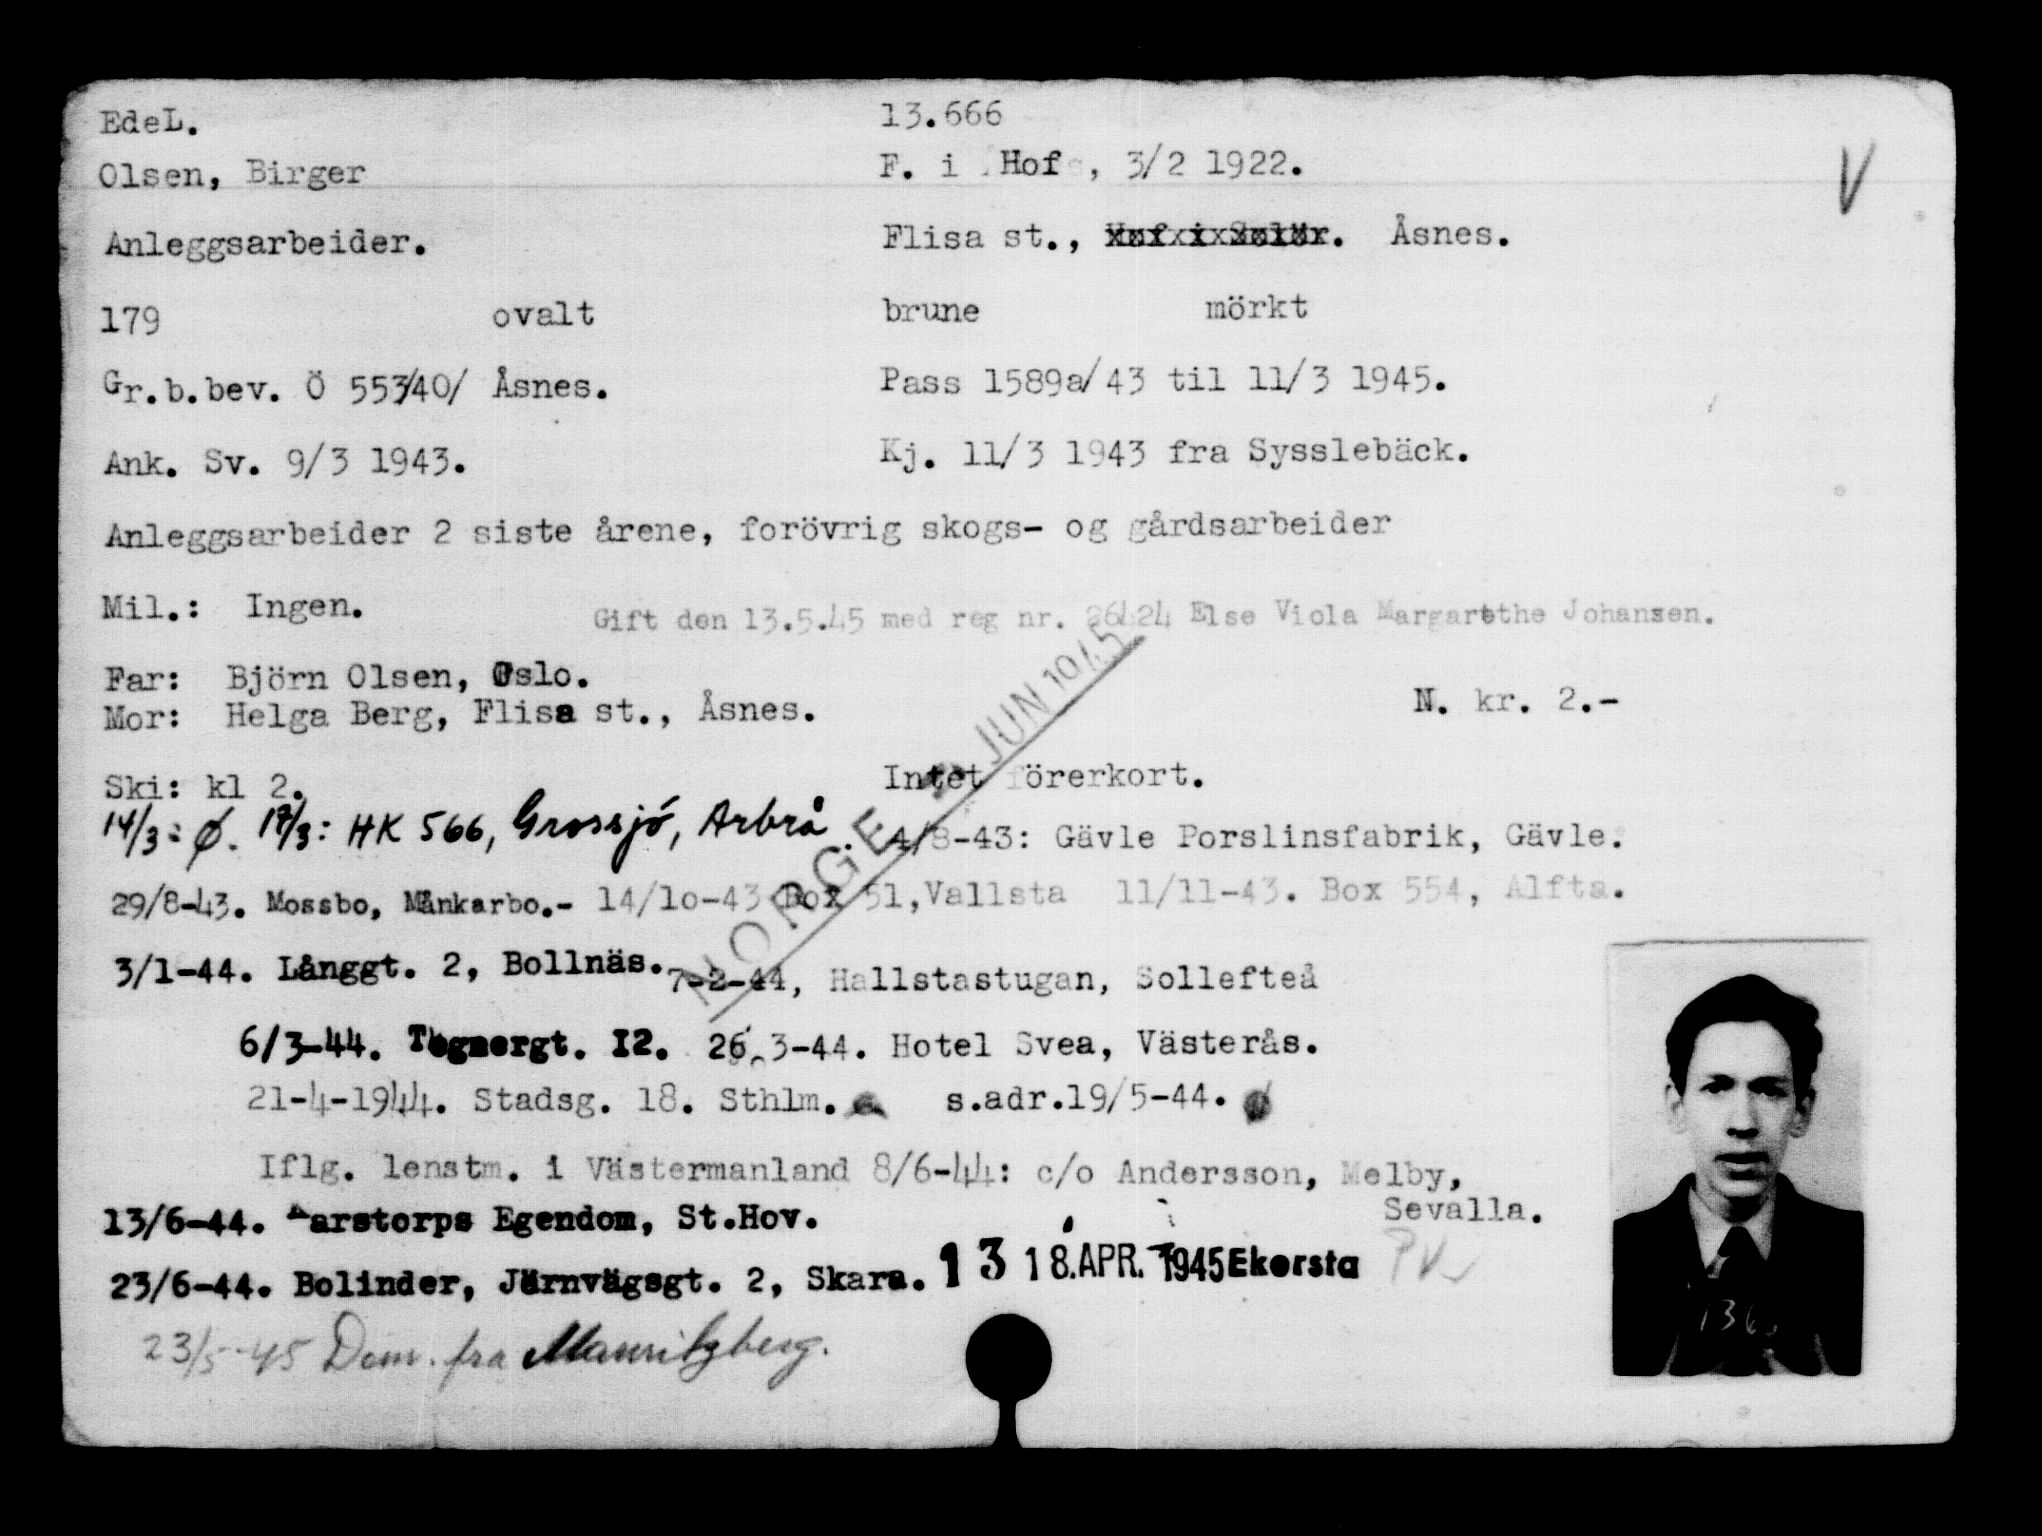 EdeL. 13.666
Olsen, Birger F. i Hof, 3/2 1922. V
Anleggsarbeider. Flisa st., Hof i Solör. Åsnes.
179 ovalt brune mörkt
Gr.b.bev. Ö 553/40/ Åsnes. Pass 1589a/43 til 11/3 1945.
Ank. Sv. 9/3 1943. Kj. 11/3 1943 fra Sysslebäck.
Anleggsarbeider 2 siste årene, forövrig skogs- og gårdsarbeider
Mil.: Ingen. Gift den 13.5.45 med reg nr. 26424 Else Viola Margarethe Johansen.
Far: Björn Olsen, Oslo.
Mor: Helga Berg, Flisa st., Åsnes. N. kr. 2.-
NORGE JUN 1945
Ski: kl 2. Intet förerkort.
14/3: Ø. 17/3: HK 566, Grossjö, Arbrå. 4/8-43: Gävle Porslinsfabrik, Gävle.
29/8-43. Mossbo, Månkarbo.- 14/10-43 Box 51, Vallsta 11/11-43. Box 554, Alfta.
3/1-44. Långgt. 2, Bollnäs. 7-2-44, Hallstastugan, Sollefteå
6/3-44. Tegnergt. I2. 26.3-44. Hotel Svea, Västerås.
21-4-1944. Stadsg. 18. Sthlm. s.adr.19/5-44.
Iflg. lenstm. i Västermanland 8/6-44: c/o Andersson, Melby,
Sevalla.
13/6-44. arstorps Egendom, St.Hov.
23/6-44. Bolinder, Järnvägsgt. 2, Skara. 13 18.APR. 1945 Ekersta PK
23/5-45 Dom. fra Mauritzberg.
136